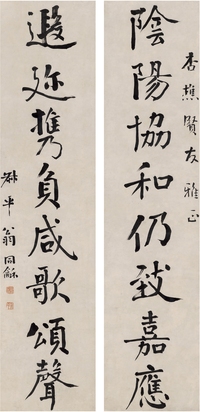 杏樵賢友雅正
陰陽協和仍致嘉應
遐迩攜負咸歌頌聲
叔平翁同龢